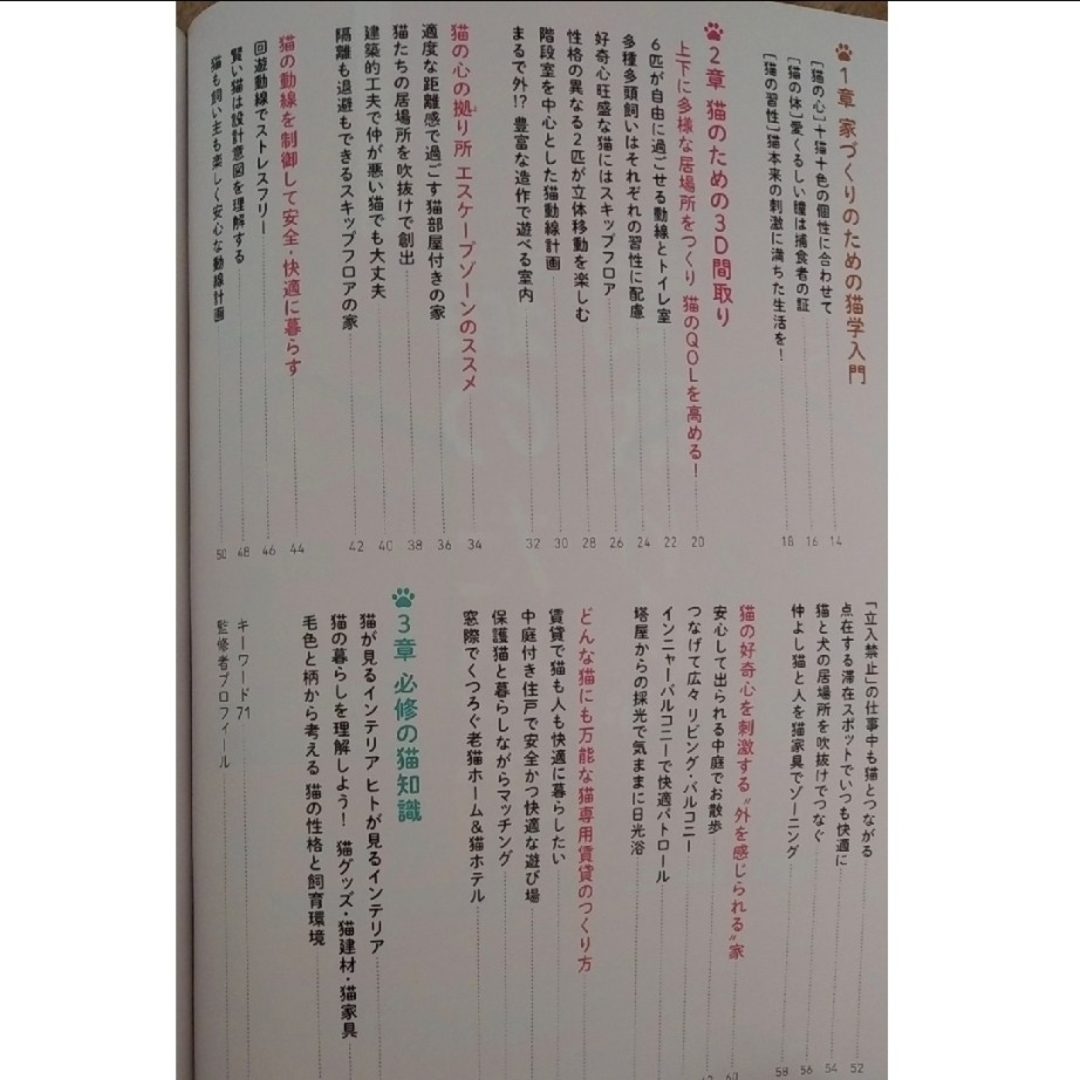 1章 家づくりのための猫学入門
[猫の心]十猫十色の個性に合わせて 14
[猫の体]愛くるしい瞳は捕食者の証 16
[猫の習性]猫本来の刺激に満ちた生活を! 18
2章 猫のための3D間取り
上下に多様な居場所をつくり 猫のQOLを高める! 20
6匹が自由に過ごせる動線とトイレ室 22
多種多頭飼いはそれぞれの習性に配慮 24
好奇心旺盛な猫にはスキップフロア 26
性格の異なる2匹が立体移動を楽しむ 28
階段室を中心とした猫動線計画 30
まるで外!? 豊富な造作で遊べる室内 32
猫の心の拠り所 エスケープゾーンのススメ 34
適度な距離感で過ごす猫部屋付きの家 36
猫たちの居場所を吹抜けで創出 38
建築的工夫で仲が悪い猫でも大丈夫 40
隔離も退避もできるスキップフロアの家 42
猫の動線を制御して安全・快適に暮らす 44
回遊動線でストレスフリー 46
賢い猫は設計意図を理解する 48
猫も飼い主も楽しく安心な動線計画 50
「立入禁止」の仕事中も猫とつながる 52
点在する滞在スポットでいつも快適に 54
猫と犬の居場所を吹抜けでつなぐ 56
仲よし猫と人を猫家具でゾーニング 58
猫の好奇心を刺激する“外を感じられる”家 60
安心して出られる中庭でお散歩
つなげて広々 リビング・バルコニー
インニャーバルコニーで快適パトロール
塔屋からの採光で気ままに日光浴
どんな猫にも万能な猫専用賃貸のつくり方
賃貸で猫も人も快適に暮らしたい
中庭付き住戸で安全かつ快適な遊び場
保護猫と暮らしながらマッチング
窓際でくつろぐ老猫ホーム&猫ホテル
3章 必修の猫知識
猫が見るインテリア ヒトが見るインテリア
猫の暮らしを理解しよう! 猫グッズ・猫建材・猫家具
毛色と柄から考える 猫の性格と飼育環境
キーワード71
監修者プロフィール